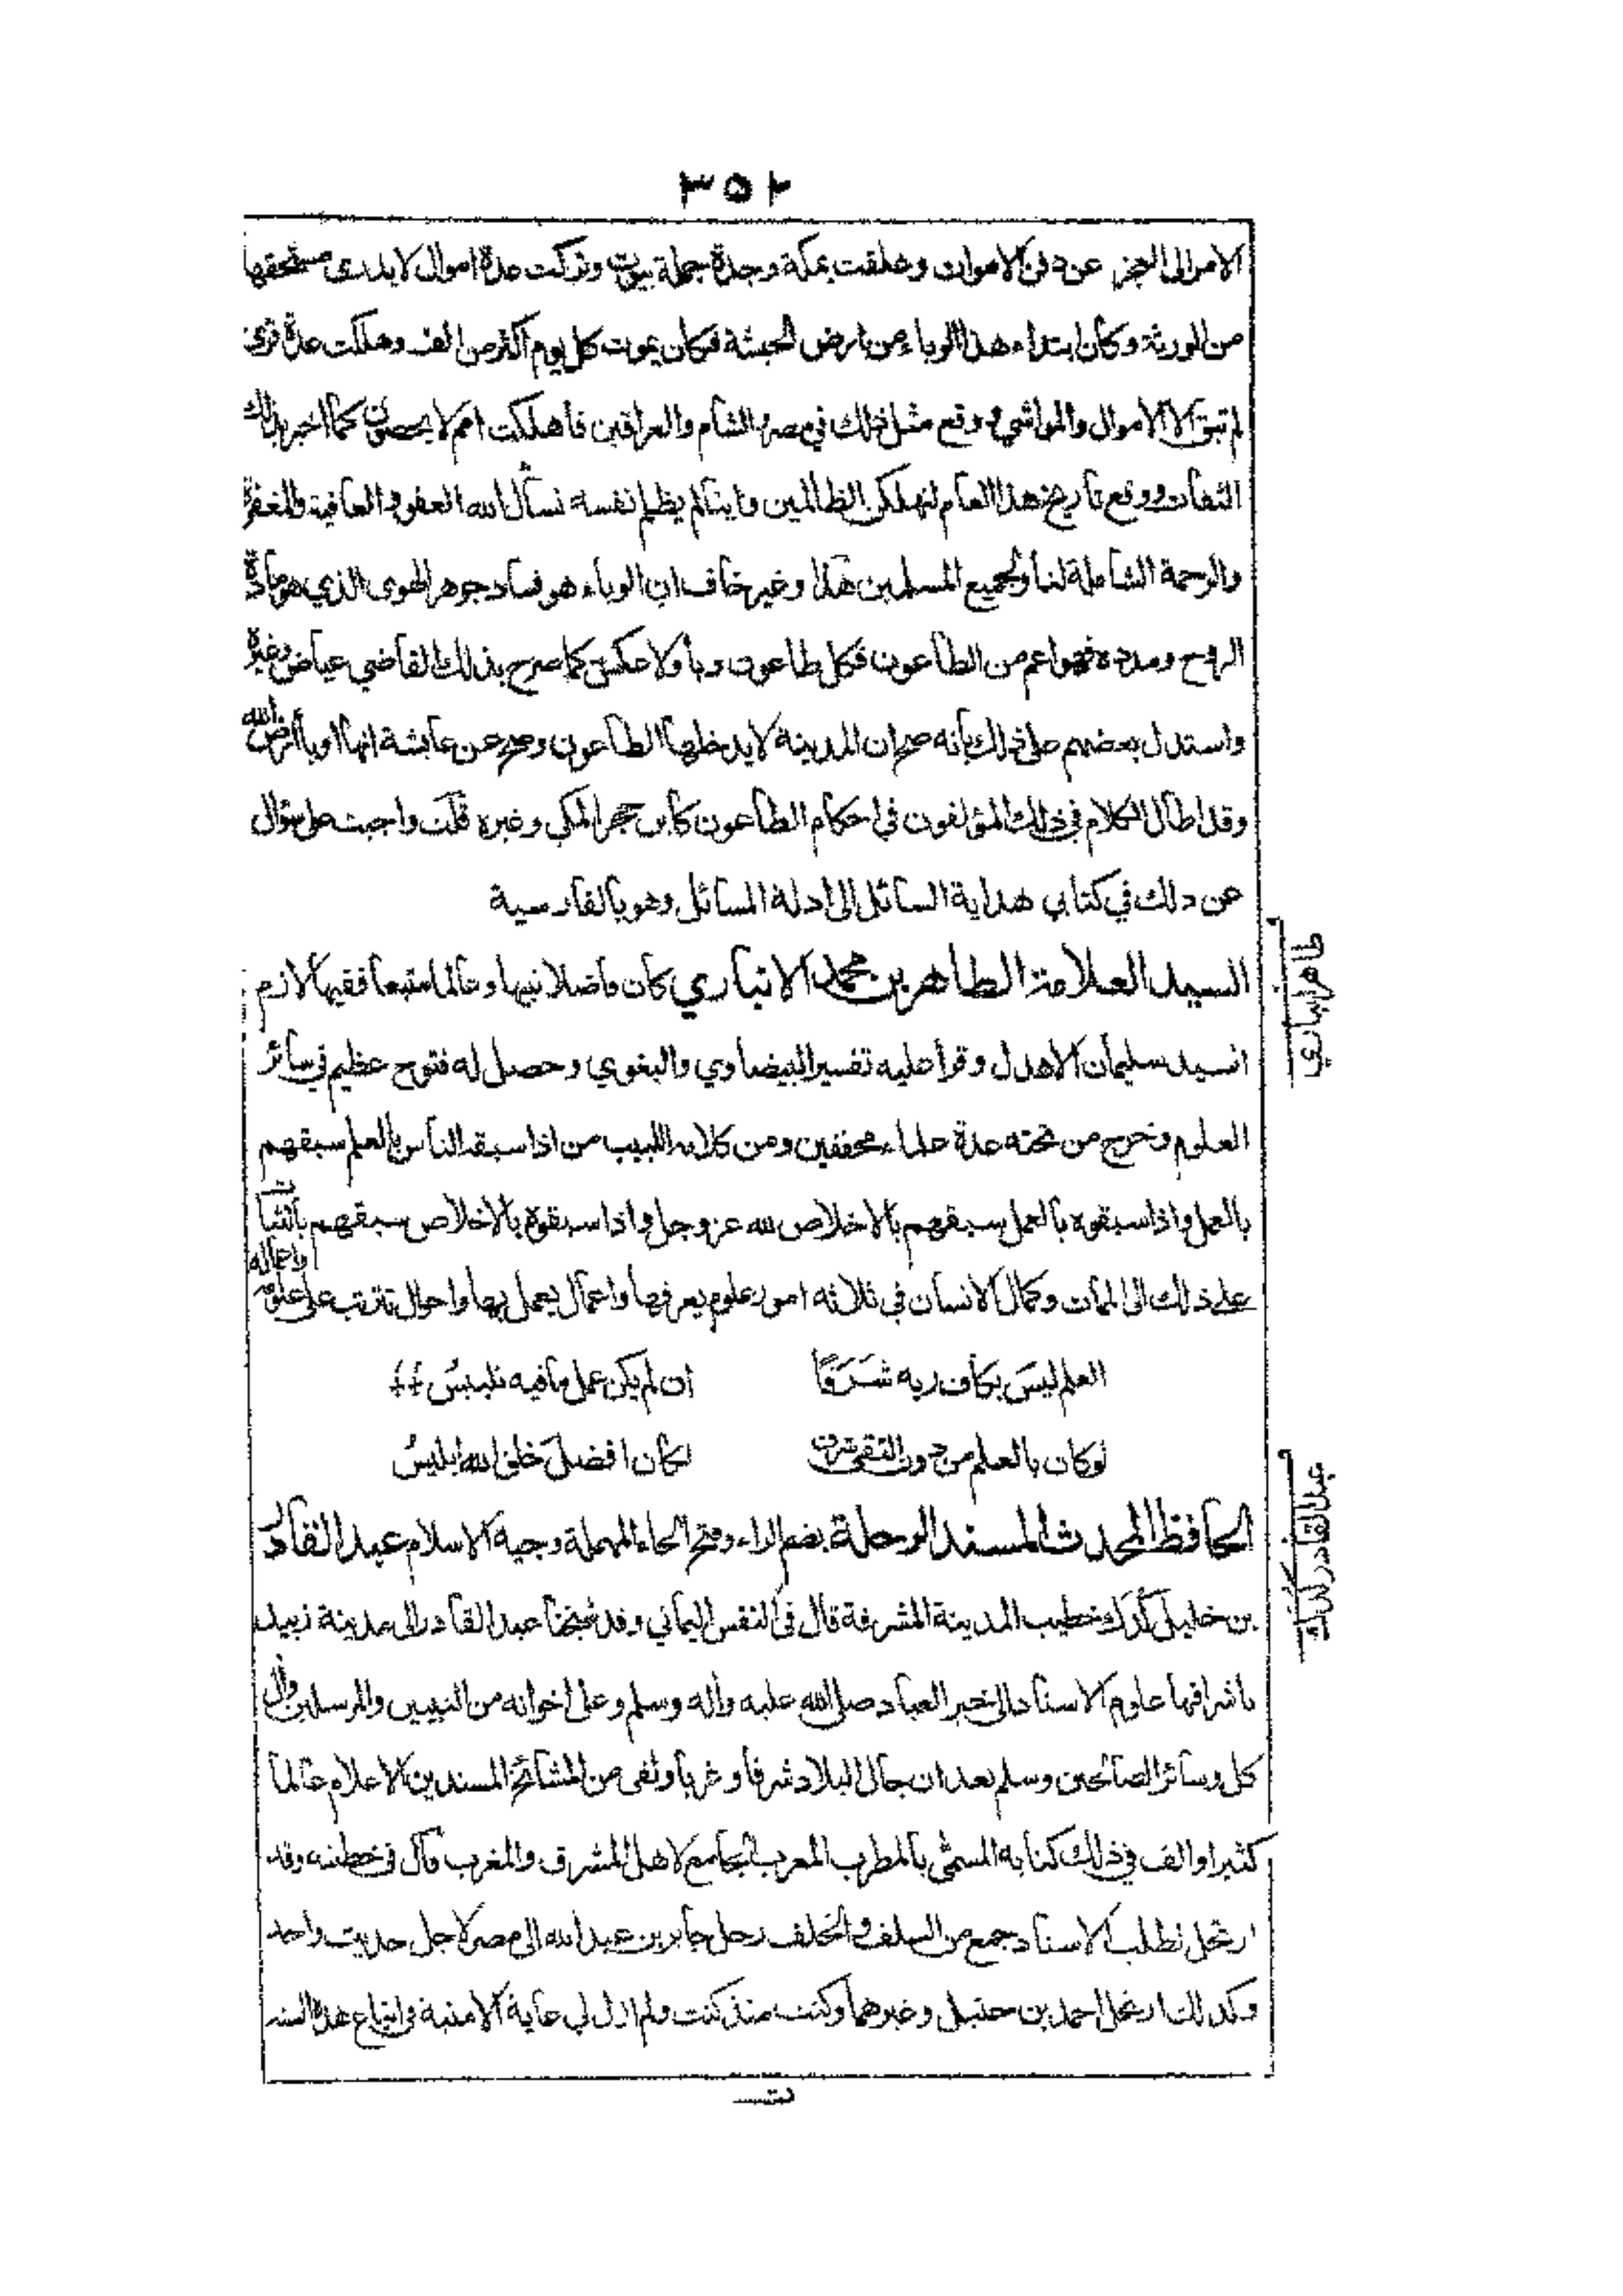 ٣٥٢
الامر الى العجز عن دفن الاموات وغلقت بمكة وجدة جملة بيوت وتركت عدة اموال لا يدرى مستحقها
من الورثة وكان ابتداء هذا الوباء من ارض الحبشة فكان يموت كل يوم اكثر من الف وهلكت عدة قرى
لم تبق الا الاموال والمواشي ووقع مثل ذلك في مصر والشام والعراقين فأهلكت امم لا يحصون كما اخبر بذلك
الثقات ووقع تأريخ هذا العام لنهلكن الظالمين واينا لم يظلم نفسه نسأل الله العفو والعافية والمغفرة
والرحمة الشاملة لنا ولجميع المسلمين هذا وغير خاف ان الوباء هو فساد جوهر الهوى الذي هو مادة
الروح ومدده فهو اعم من الطاعون فكل طاعون وبأ ولا عكس كما صرح بذلك القاضي عياض وغيره
واستدل بعضهم على ذلك بأنه صح ان المدينة لا يدخلها الطاعون وصح عن عايشة انها اوبأ ارض الله
وقد اطال الكلام في ذلك المؤلفون في احكام الطاعون كأبن حجر المكي وغيره قلت واجبت على سؤال
عن ذلك في كتابي هداية السائل الى ادلة المسائل وهو بالفارسية
السيد العلامة الطاهر بن محمد الانباري كان فاضلا نبيها وعالما متبعا فقيها لازم
السيد سليمان الاهدل وقرأ عليه تفسير البيضاوي والبغوي وحصل له فتوح عظيم في سائر
العلوم وتخرج من تحته عدة علماء محققين ومن كلامه اللبيب من اذا سبقه الناس بالعلم سبقهم
بالعمل واذا سبقوه بالعمل سبقهم بالاخلاص لله عز وجل واذا سبقوه بالاخلاص سبقهم بالثبات
على ذلك الى الممات وكمال الانسان في ثلاثه امور علوم يعرفها واعمال يعمل بها واحوال تترتب على علومه واعماله
العلم ليسَ بكاف ربه شَرَفًا ان لم يكن عمل ما فيه تلبيسُ
لو كان بالعلم من دون التقى شرف لكان افضلَ خلق الله ابليسُ
الحافظ المحدث المسند الرحلة بضم الراء وفتح الحاء المهملة وجيه الاسلام عبد القادر
بن خليل كدك خطيب المدينة المشرفة قال في النفس اليماني وفد شيخنا عبد القادر الى مدينة زبيد
ناشرا فيها علوم الاسناد الى خير العباد صلى الله عليه وآله وسلم وعلى اخوانه من النبيين والمرسلين وآل
كل وسائر الصالحين وسلم بعد ان جال البلاد شرقا وغربا ولقى من المشائخ المسندين الاعلام عالما
كثيرا والف في ذلك كتابه المسمى بالمطرب المعرب الجامع لاهل المشرق والمغرب قال في خطبته وقد
ارتحل لطلب الاسناد جمع من السلف والخلف رحل جابر بن عبد الله الى مصر لاجل حديث واحد
وكذلك ارتحل احمد بن حنبل وغيرهما وكنت منذ كنت ولم ازل لي غاية الامنية في اتباع هذه السنه
طاهر انباري
عبد القادر كدك